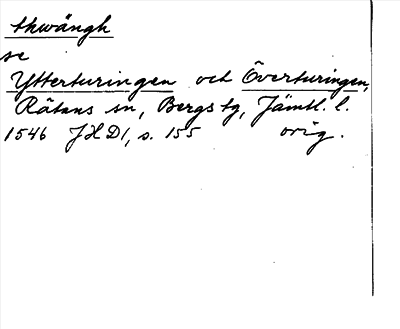 thwängh
se
Ytterturingen och Överturingen,
Rätans sn, Bergs tg, Jämtl. l.
1546 JHD1, s. 155 orig.